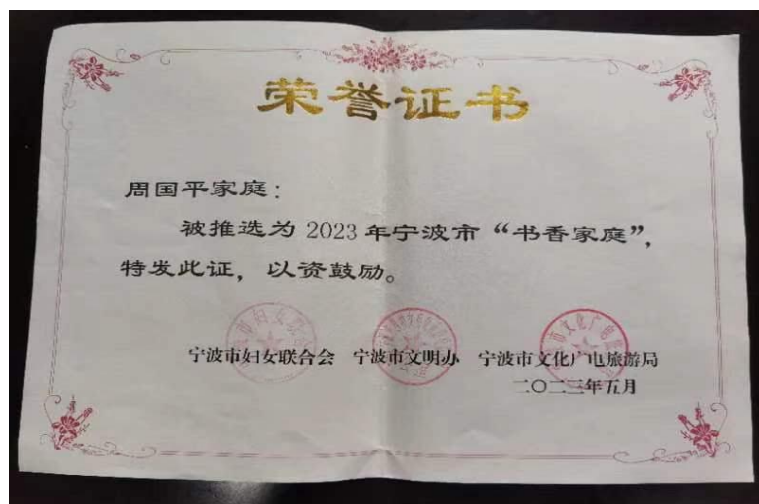 荣誉证书
周国平家庭：
被推选为 2023 年宁波市“书香家庭”，
特发此证，以资鼓励。
宁波市妇女联合会 宁波市文明办 宁波市文化广电旅游局
二〇二三年五月